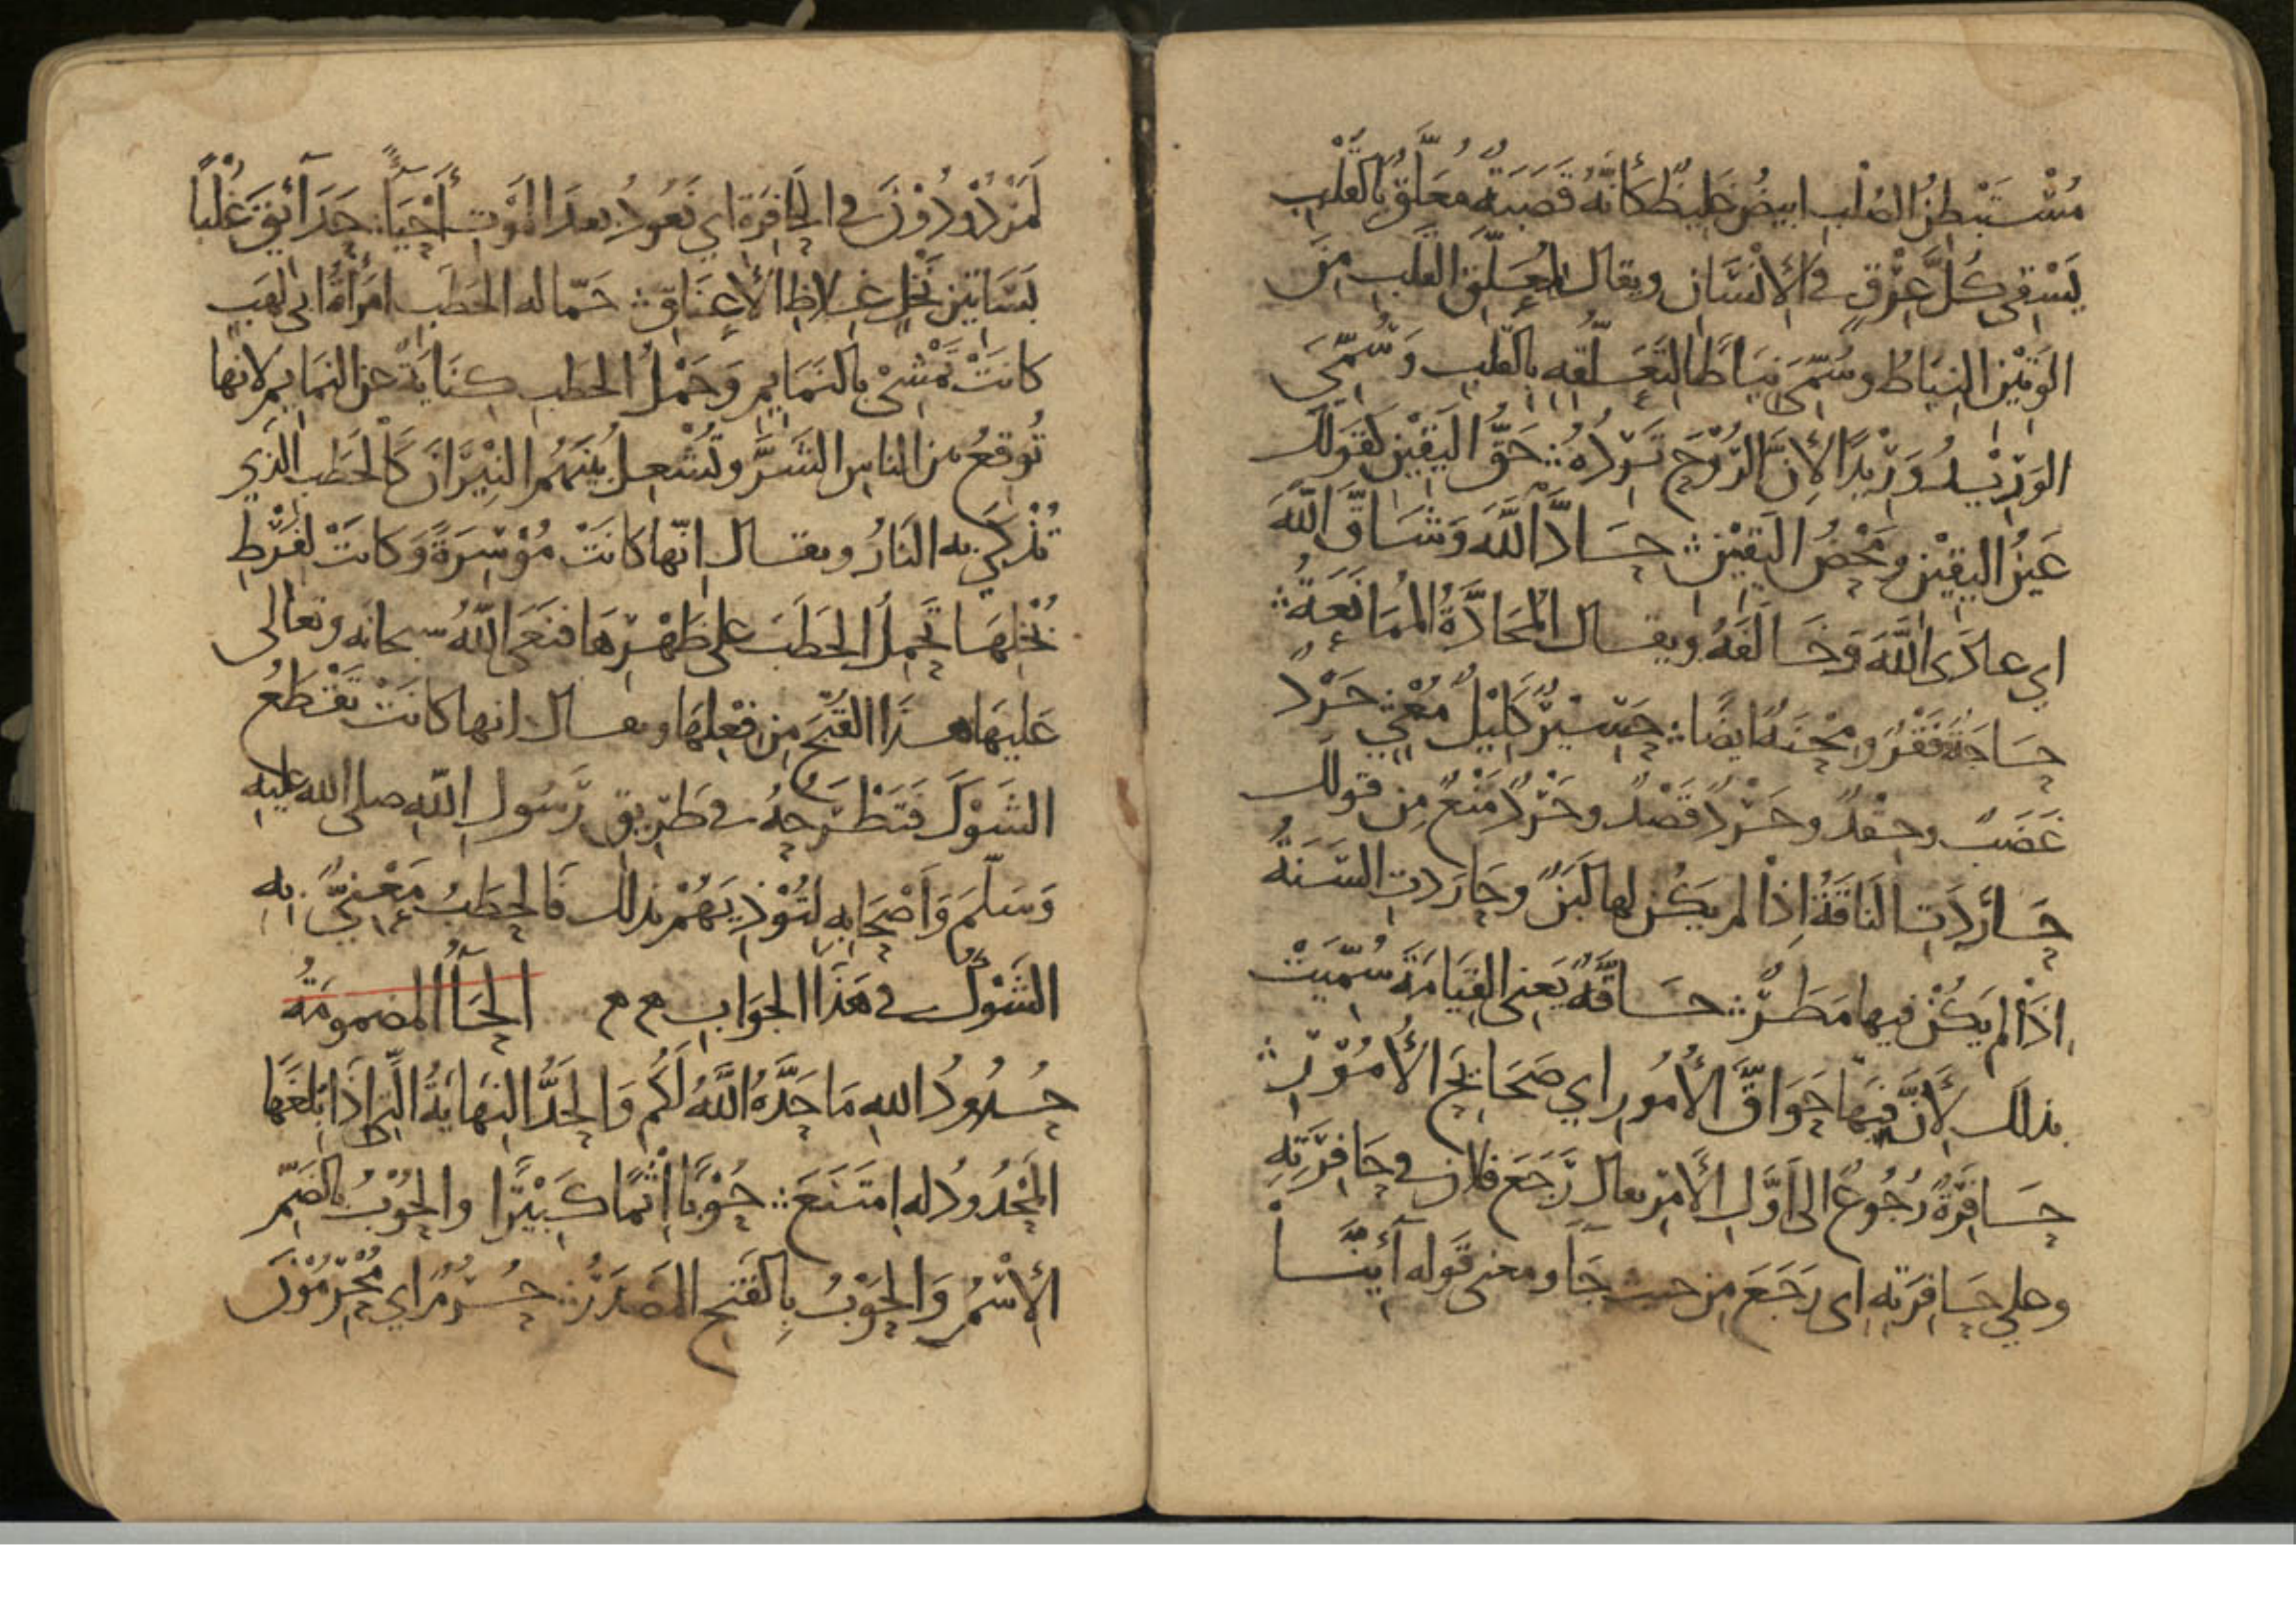 مُسْتَبْطِنُ الصُلْبِ ابيضُ غليظٌ كأنّهُ قَصَبَةٌ مُعَلَّقٌ بِالقَلْبِ
يَسْقِي كُلَّ عِرْقٍ في الأِنْسَان ويقال لمُعَلَّقِ القَلبِ مِنَ
الوَتِيْنِ النِيَاطُ وسُمّيَ نِيَاطًا لتَعَلّقه بِالقَلبِ وَسُمّيَ
الوَرِيْدُ وَرِيْدًا لأِنَّ الرُوْحَ تَرِدُهُ ۞ حَقُّ اليَقِيْنِ كقَولك
عَيْنُ اليقِيْنِ ومَحْضُ اليَقِيْنِ ۞ حَادَّ اللَّهَ وَشَاقَّ اللَّهَ
اي عادَى اللَّهَ وَخَالَفَهُ ويقال المُحَادَّةُ المُمَانَعَةُ ۞
حَاجَةٌ فَقْرٌ ومِحْنَةٌ ايضًا ۞ حَسِيْرٌ كَلِيْلٌ مُعْيٍ حَرْدٌ
غَضَبٌ وحقدٌ وحَرْدٌ قَصْدٌ وحَرْدٌ مَنْعٌ مِن قولك
حَارَدَتِ النَاقَةُ اِذَا لم يَكُن لها لَبَنٌ وحَارَدتِ السَنَةُ
اِذَا لم يَكُنْ فيها مَطَرٌ ۞ حَاقَّةُ يَعني القِيَامَةَ سُمِّيَتْ
بذلكَ لأَنَّ فِيْهَا حَوَاقَّ الأُمُورِ اي صَحَايِحَ الأُمُوْرِ ۞
حَافِرَةٌ رُجُوعٌ الى اَوَّلِ الأَمْرِ يقال رَجَعَ فلان في حَافِرَتِهِ
وعلي حَافِرَتِه اى رَجَعَ مِن حيث جَآَ ومعنى قَوله أَيِنَّا
لَمَرْدُوْدُوْنَ في الحَافِرَةِ اي نَعُودُ بعدَ المَوْتِ أَحْيَآءً ۞ حَدَآئِقَ غُلْبًا
بَسَاتِيْن نَخْلٍ غِلاظِ الأَعنَاقِ ۞ حَمّاله الحَطَبِ امْرَأَةُ ابي لهَبٍ
كانَتْ تَمْشِيْ بالنَمَايِمِ وَحَمْلُ الحطَبِ كِنَايَةٌ عن النمَايمِ لانها
تُوقعُ بين الناسِ الشَرَّ وتُشْعِلُ بَيْنَهُمُ النِيْرَانَ كَالحَطَبِ الذي
تُذكَى به النَارُ ويقال انّها كَانَتْ مُوْسِرَةً وَكَانَتْ لفَرْطِ
بُخْلِهَا تَحمِلُ الحَطَبَ على ظَهْرِهَا فنَعَى اللّهُ سبحانه وتعالى
عَليهَا هذَا القُبْحَ مِن فِعْلِهَا ويقال انها كانَتْ تَقْطَعُ
الشَوْكَ فَتَطْرَحُهُ في طَرِيقِ رَسُولِ اللّهِ صلى الله عليه
وَسَلّمَ وَأَصْحَابِهِ لِتُؤْذِيَهُمْ بذلك فَالحَطَبُ مَعْنِيٌّ به
الشَوْكُ في هَذَا الجَوَابِ م م الحَآءُ المضمومَةُ
حُدُودُ اللهِ مَا حَدَّهُ اللَّهُ لَكُم وَالحَدُّ النِهَايَةُ الّتي اِذَا بَلغَهَا
المَحْدُودُ له امتَنَعَ ۞ حُوْبًا اِثْمًا كَبِيْرًا والحُوْبُ بالضَمِّ
الأِسْمُ وَالحَوْبُ بِالفَتحِ المَصْدَرُ ۞ حُرُمٌ اي مُحْرِمُوْنَ